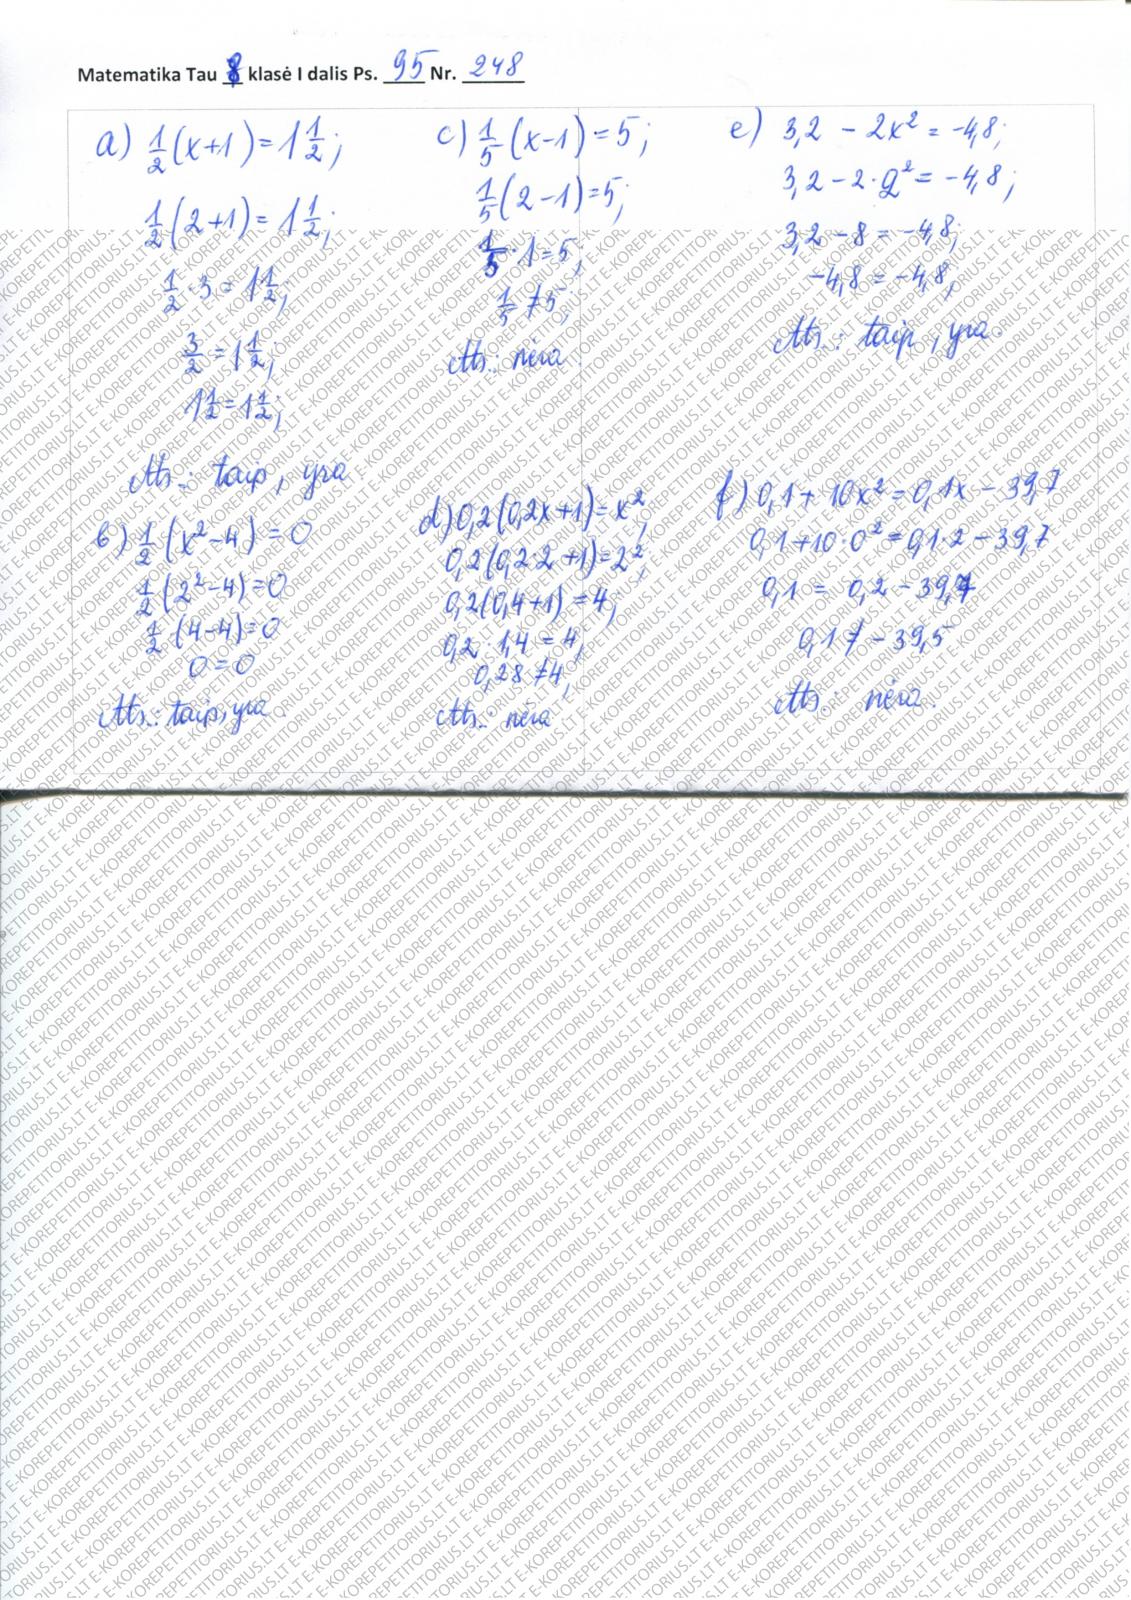 Matematika Tau 8 klasė I dalis Ps. 95 Nr. 248
a) 1/2 (x+1) = 1 1/2;
1/2 (2+1) = 1 1/2;
1/2 · 3 = 1 1/2;
3/2 = 1 1/2;
1 1/2 = 1 1/2;
Ats.: taip, yra
b) 1/2 (x²-4) = 0
1/2 (2²-4) = 0
1/2 · (4-4) = 0
0 = 0
Ats.: taip, yra.
c) 1/5 (x-1) = 5;
1/5 (2-1) = 5;
1/5 · 1 = 5;
1/5 ≠ 5;
Ats.: nėra.
d) 0,2(0,2x+1) = x²;
0,2(0,2·2+1) = 2²;
0,2(0,4+1) = 4;
0,2 · 1,4 = 4;
0,28 ≠ 4;
Ats.: nėra
e) 3,2 - 2x² = -4,8;
3,2 - 2·2² = -4,8;
3,2 - 8 = -4,8;
-4,8 = -4,8;
Ats.: taip, yra.
f) 0,1 + 10x² = 0,1x - 39,7
0,1 + 10·0² = 0,1·2 - 39,7
0,1 = 0,2 - 39,7
0,1 ≠ -39,5
Ats: nėra.
E-KOREPETITORIUS.LT